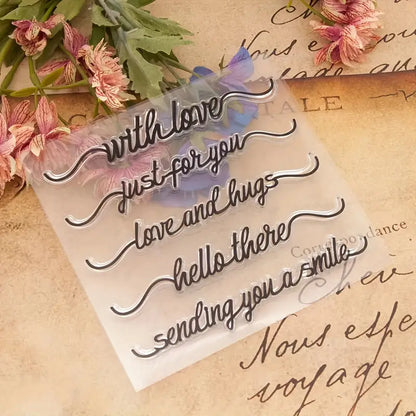 Nous espe
voyage
TALE
with love
just for you
love and hugs
hello there
sending you a smile
Correspondance
Nous espe
voyage